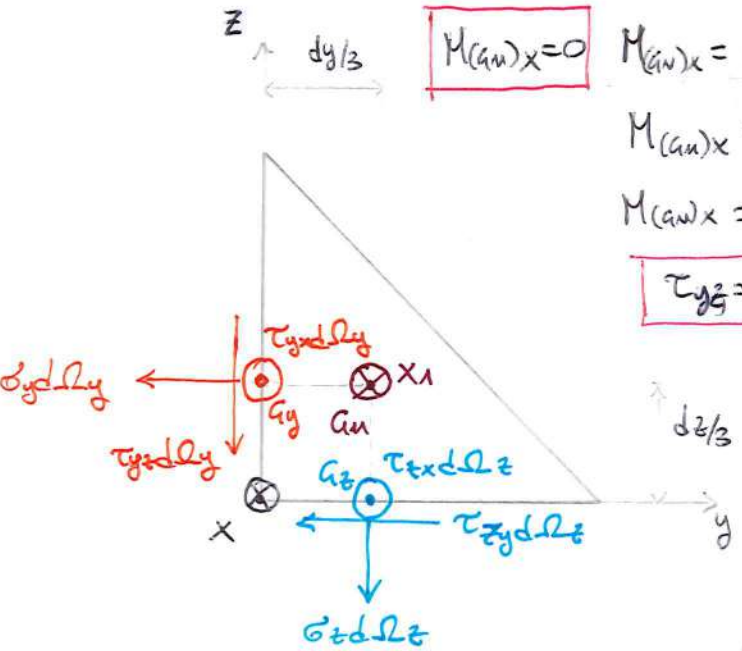 z
dy/3
M(Gn)x=0
M(Gn)x =
M(Gn)x
M(Gn)x =
τyz=
τyxdΩy
σydΩy
x1
Gy
Gn
dz/3
τyzdΩy
Gz
τzxdΩz
x
τzydΩz
y
σzdΩz